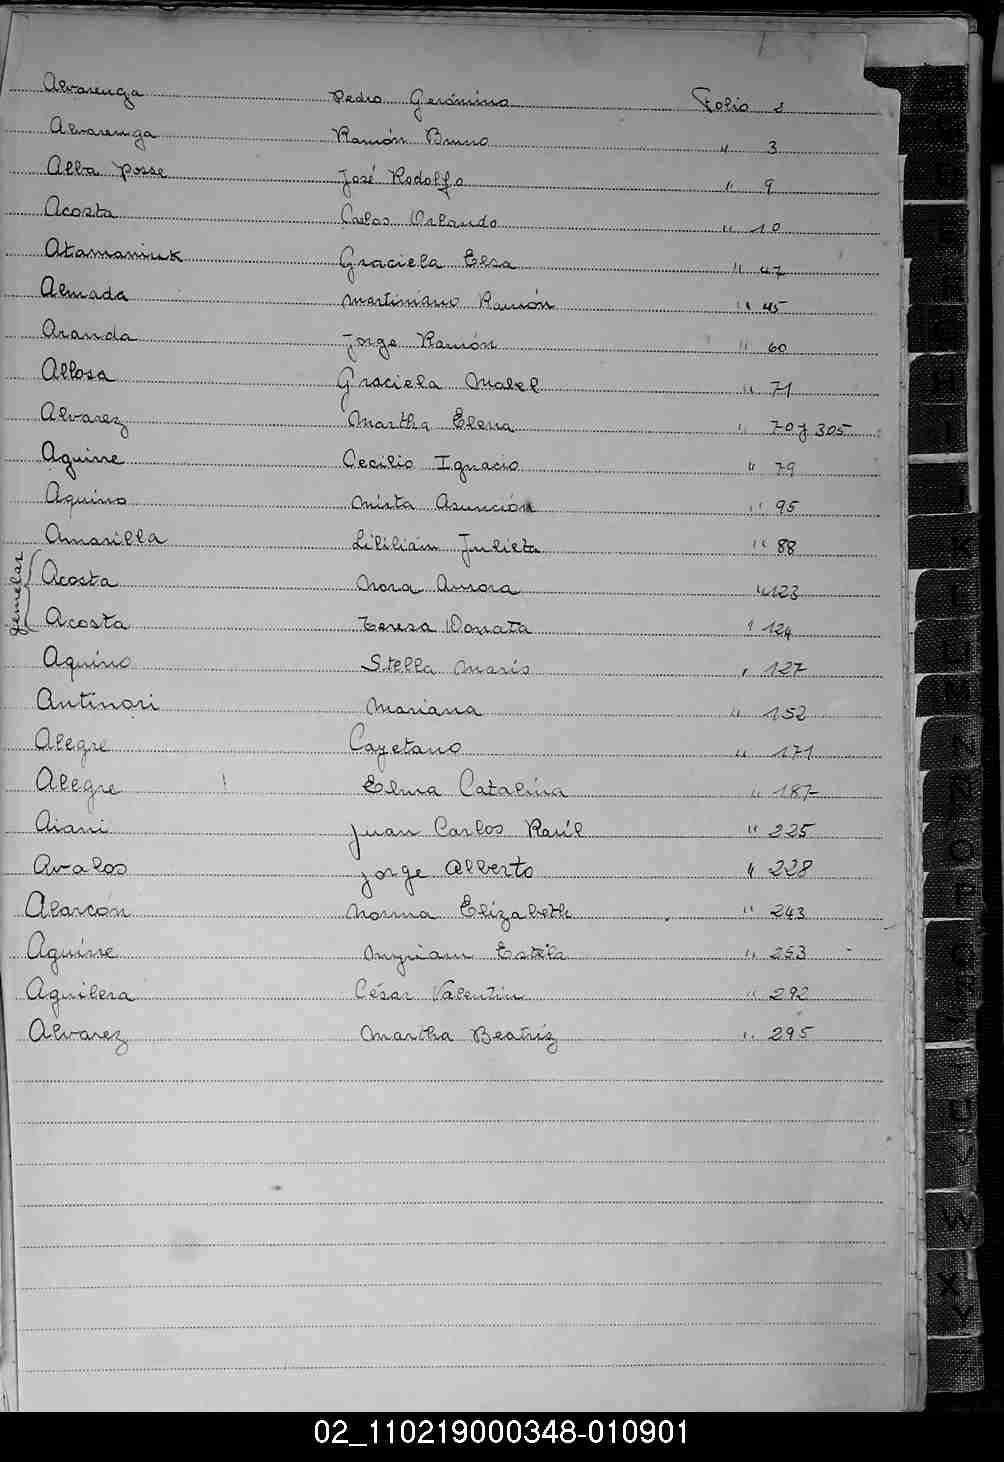 Alvarenga Pedro Gerónimo Folio 2
Alvarenga Ramón Bruno " 3
Alba Posse José Rodolfo " 9
Acosta Carlos Orlando " 10
Atamaniuk Graciela Elsa " 47
Almada Martiniano Ramón " 45
Aranda Jorge Ramón " 60
Allosa Graciela Mabel " 71
Alvarez Martha Elena " 70 y 305
Aguirre Cecilio Ignacio " 79
Aquino Mirta Asunción " 95
Amarilla Lililián Julieta " 88
gemelas
Acosta Nora Aurora " 123
Acosta Teresa Donata " 124
Aquino Stella Maris " 127
Antinori Mariana " 152
Alegre Cayetano " 171
Alegre Elma Catalina " 187
Aiani Juan Carlos Raúl " 225
Avalos Jorge Alberto " 228
Alarcón Norma Elizabeth " 243
Aguirre Myriam Estela " 253
Aguilera César Valentin " 292
Alvarez Martha Beatriz " 295
W
X
Y
02_110219000348-010901